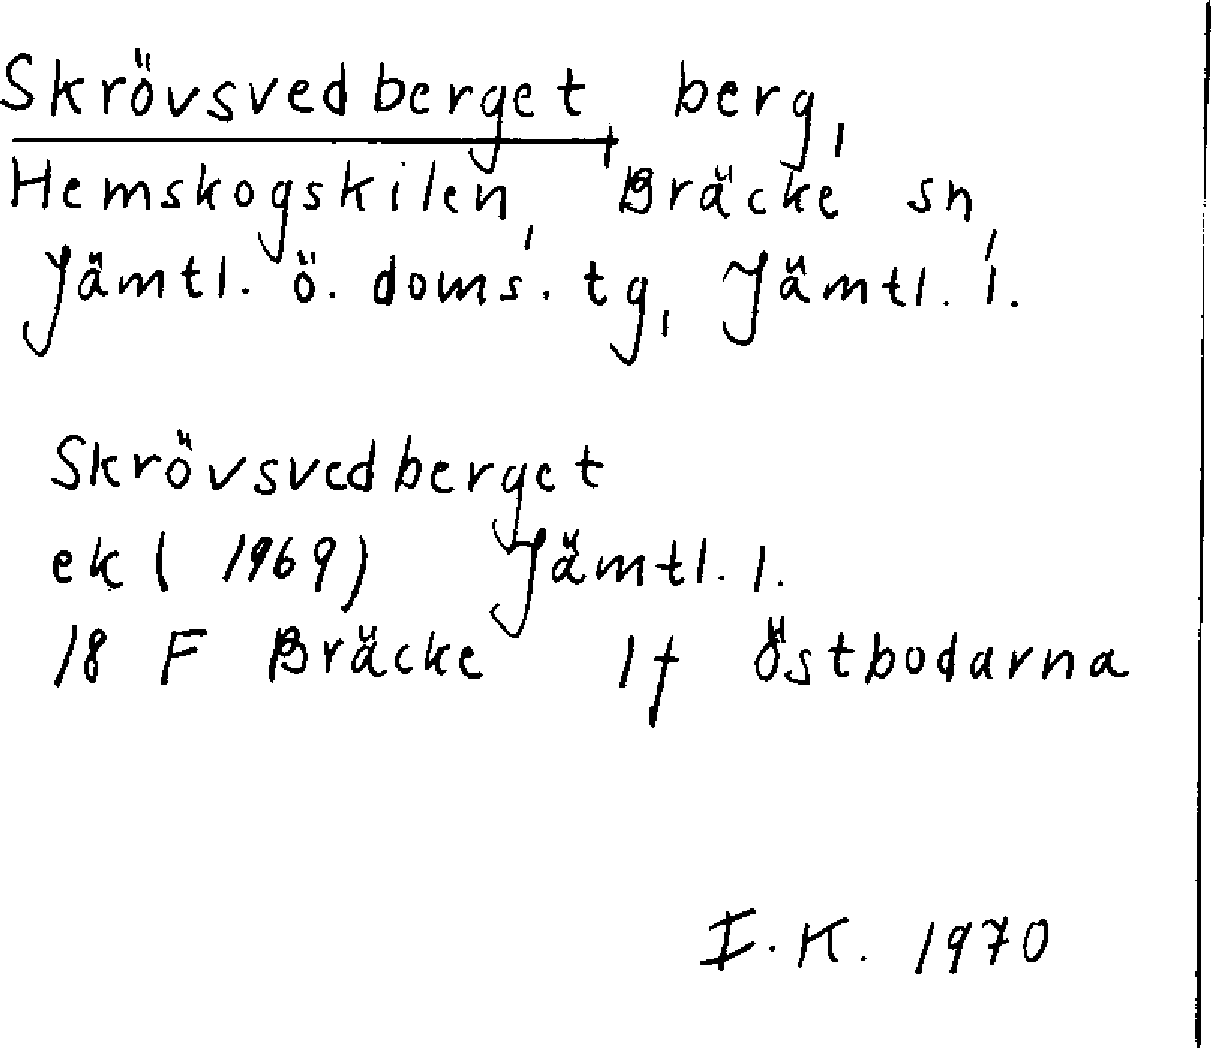 Skrövsvedberget, berg,
Hemskogskilen, Bräcke sn,
Jämtl. ö. doms. tg, Jämtl. l.
Skrövsvedberget
ek ( 1969) Jämtl. l.
18 F Bräcke 1f Östbodarna
I.K. 1970